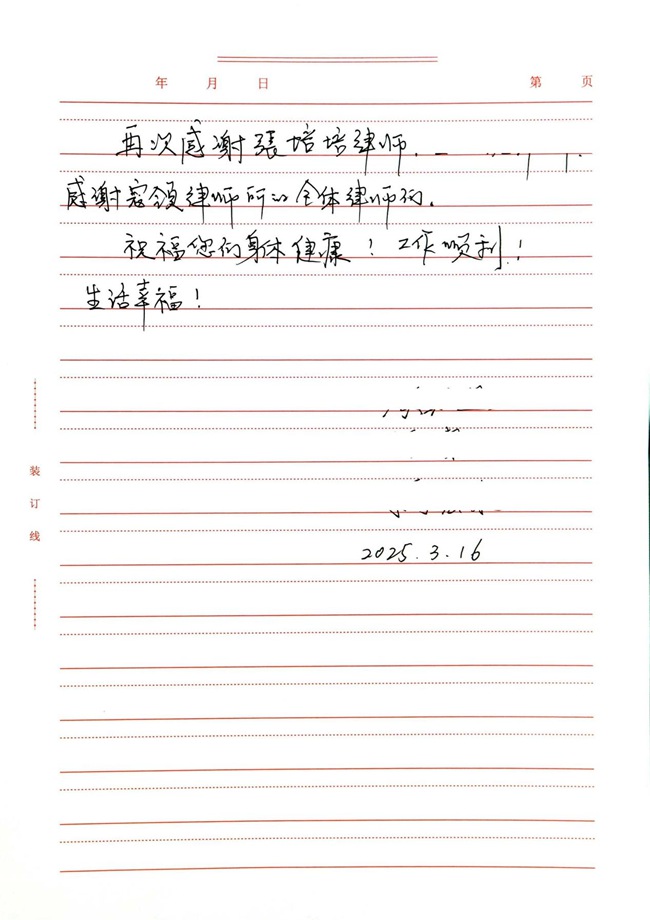 年 月 日 第 页
再次感谢張培培律师.
感谢冠领律师所的全体律师们.
祝福您们身体健康！工作顺利！
生活幸福！
装
订
线
2025.3.16